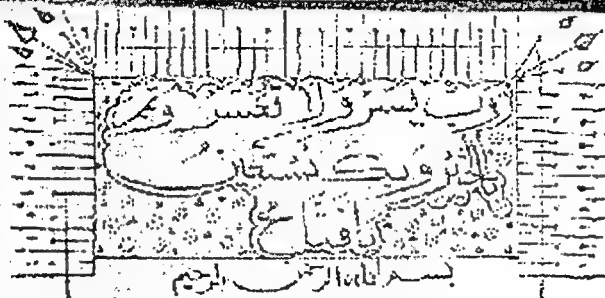 رب يسر ولا تعسر
بالخير وبك نستعين
يا فتاح
بسم الله الرحمن الرحيم